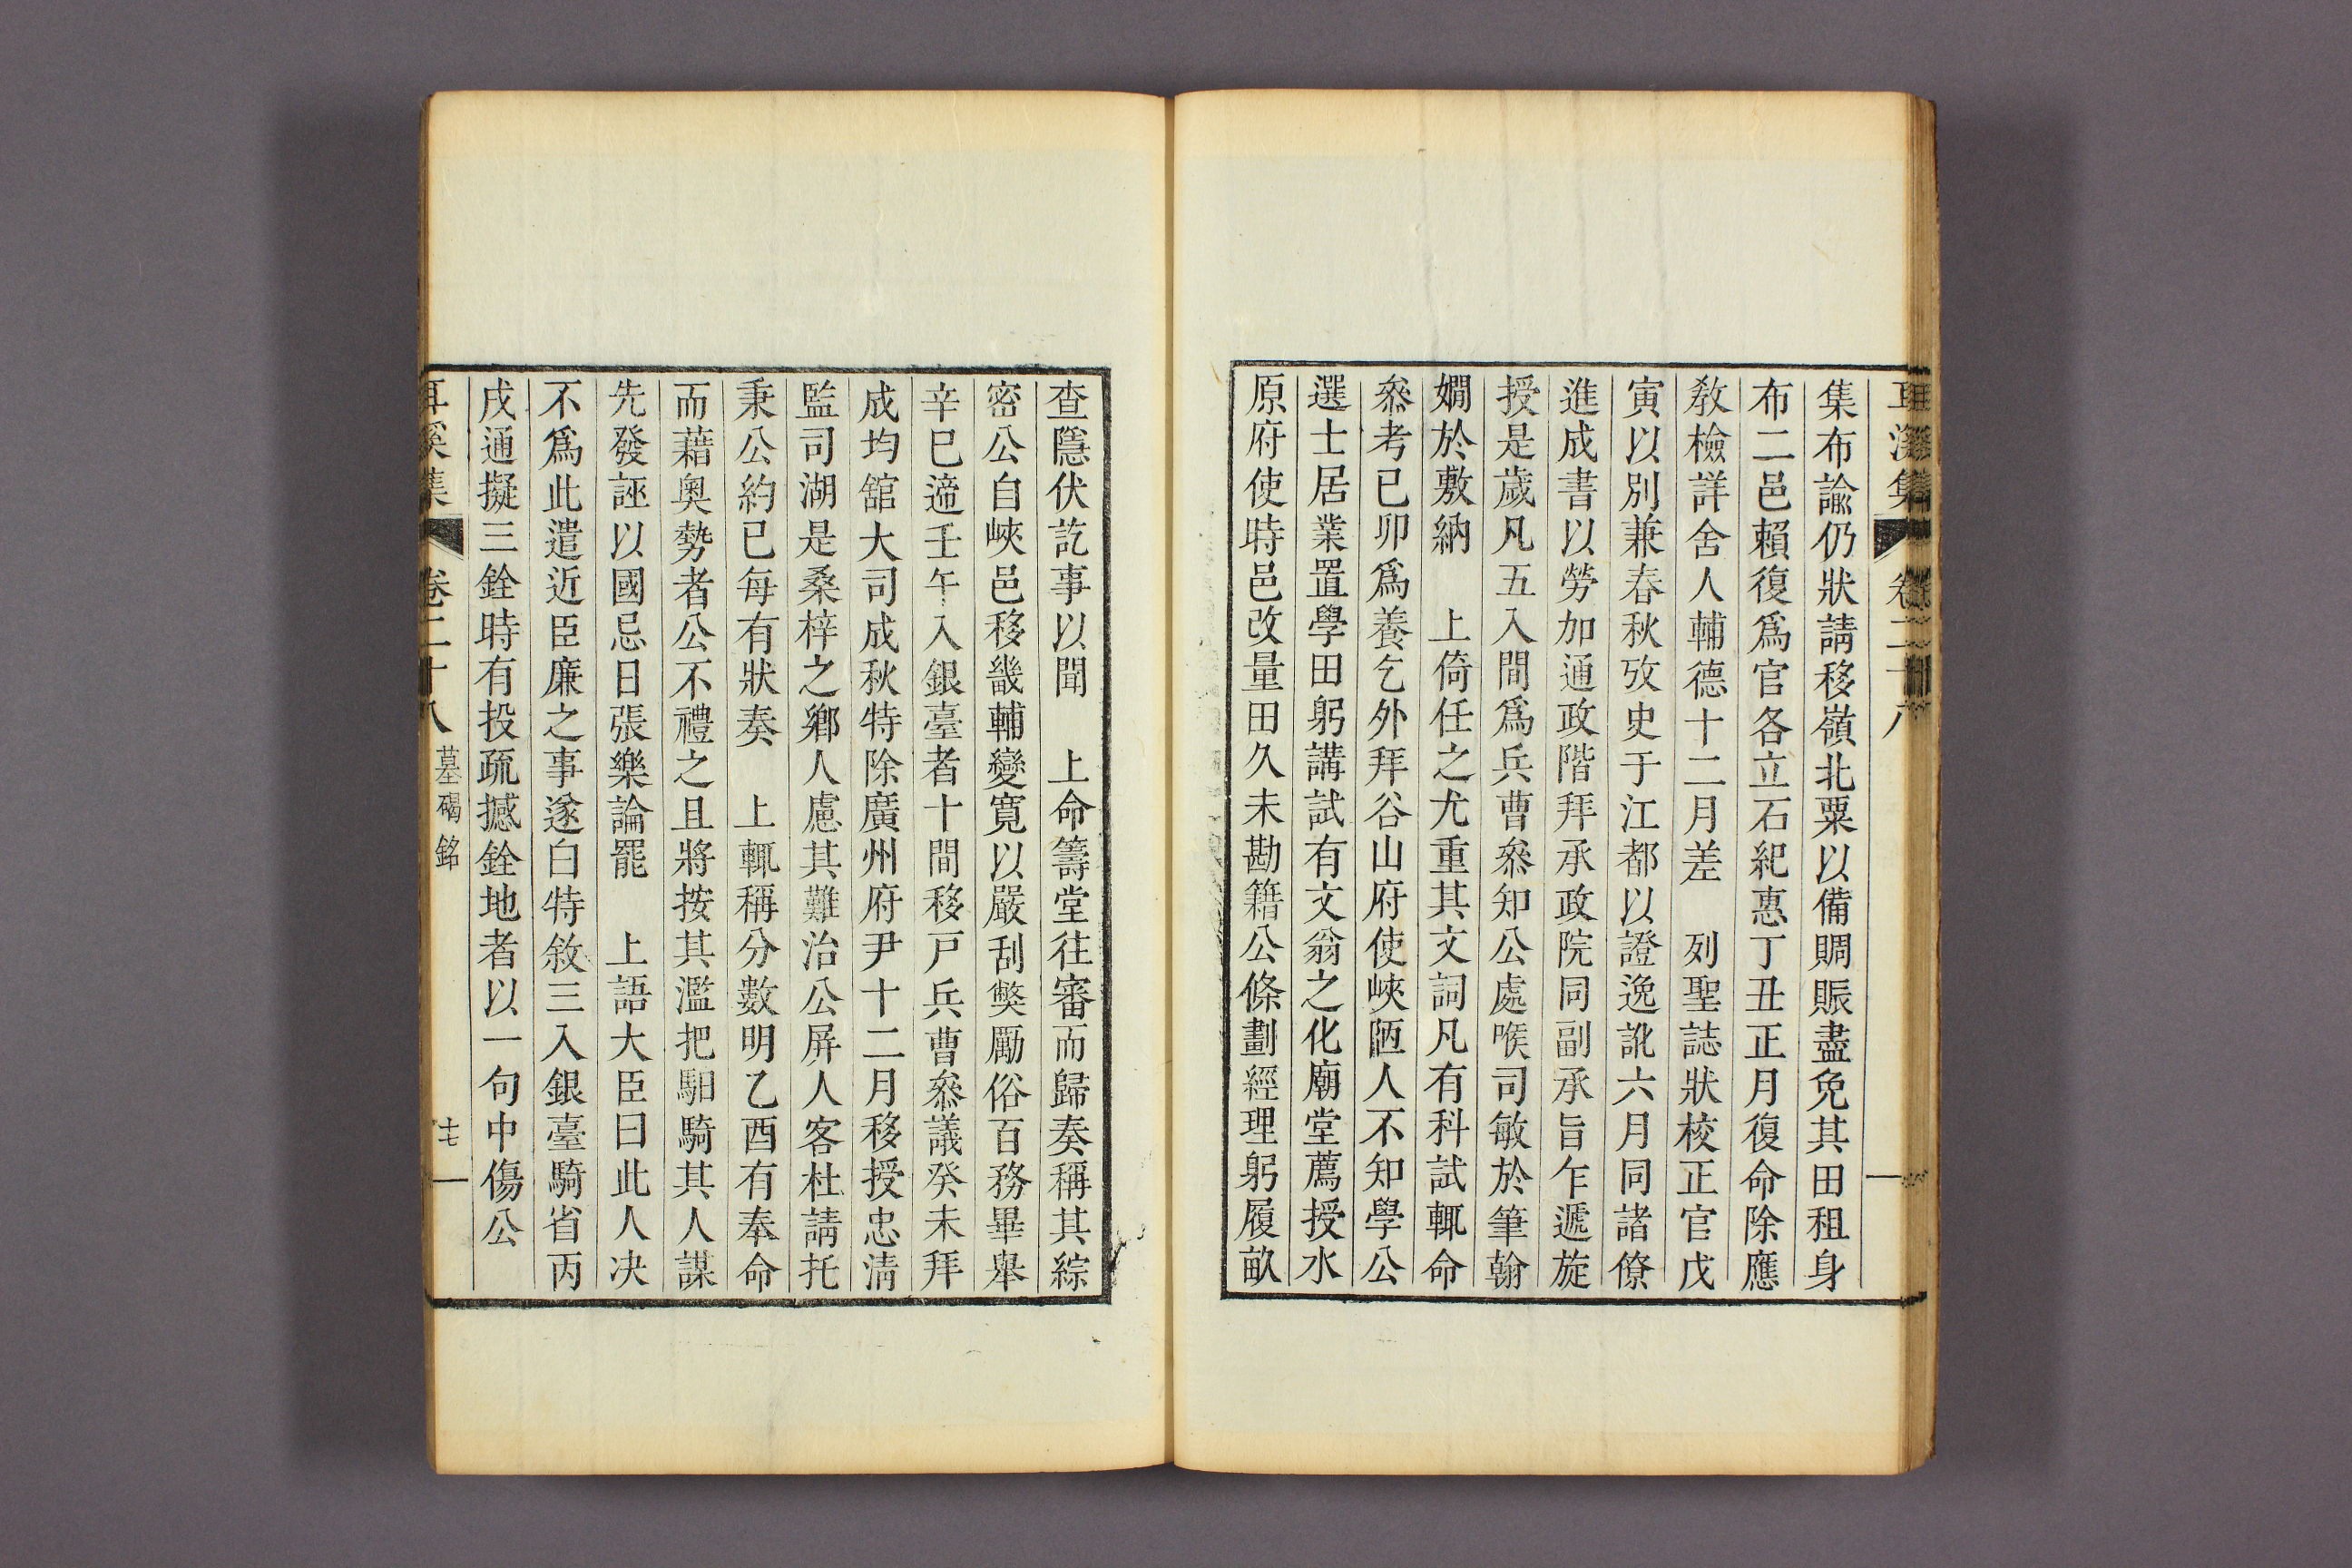 耳溪集 卷二十八
集布諭仍狀請移嶺北粟以備賙賑盡免其田租身
布二邑賴復爲官各立石紀惠丁丑正月復命除應
敎檢詳舍人輔德十二月差 列聖誌狀校正官戊
寅以別兼春秋攷史于江都以證逸訛六月同諸僚
進成書以勞加通政階拜承政院同副承旨乍遞旋
授是歲凡五入間爲兵曹叅知公處喉司敏於筆翰
嫺於敷納 上倚任之尤重其文詞凡有科試輒命
叅考已卯爲養乞外拜谷山府使峽陋人不知學公
選士居業置學田躬講試有文翁之化廟堂薦授水
原府使時邑改量田久未勘籍公條劃經理躬履畝
查隱伏訖事以聞 上命籌堂往審而歸奏稱其綜
密公自峽邑移畿輔變寬以嚴刮獘勵俗百務畢舉
辛巳遞壬午入銀臺者十間移戶兵曹叅議癸未拜
成均舘大司成秋特除廣州府尹十二月移授忠淸
監司湖是桑梓之鄕人慮其難治公屏人客杜請托
秉公約已每有狀奏 上輒稱分數明乙酉有奉命
而藉奧勢者公不禮之且將按其濫把馹騎其人謀
先發誣以國忌日張樂論罷 上語大臣曰此人决
不爲此遣近臣廉之事遂白特敘三入銀臺騎省丙
戌通擬三銓時有投疏撼銓地者以一句中傷公
耳溪集 卷二十八 墓碣銘 十七